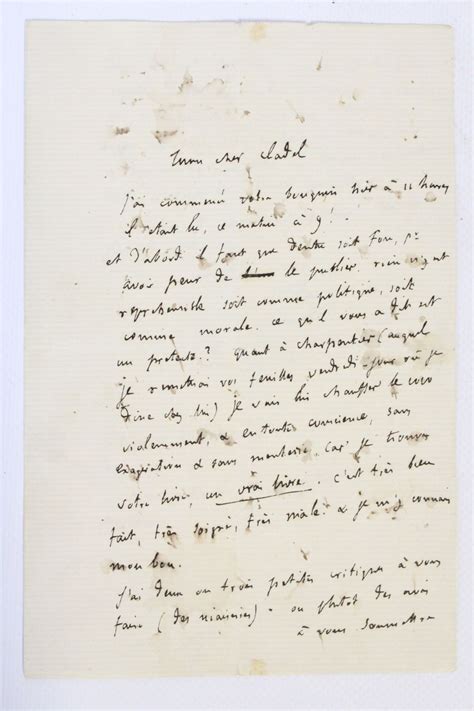 mon cher Cladel
J'ai commencé votre bouquin hier à 11 heures
il était lu, ce matin à 9!
et d'abord il faut que Dentu soit fou, pr
avoir peur de le publier. rien n'y est
répréhensible soit comme politique, soit
comme morale. ce qu'il vous a dit est
un prétexte? Quant à Charpentier (auquel
je remettrai vos feuilles vendredi - jour où je
dîne chez lui) je vais lui chauffer le coco
violemment, & en toute conscience, sans
exagération & sans menterie. Car je trouve
votre livre, un vrai livre. C'est très bien
fait, très soigné, très mâle. & je m'y connais
mon bon.
J'ai deux ou trois petites critiques à vous
faire (des niaiseries) - ou plutôt des avis
à vous soumettre